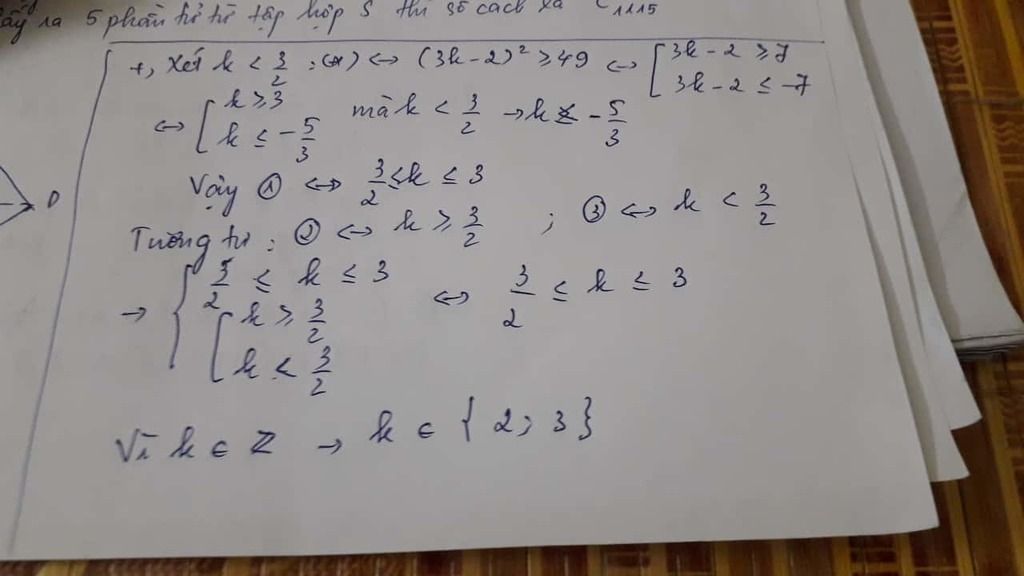 5 phần tử từ tập hợp S thì số cách
+, Xét k < 3/2 : (*) ↔ (3k-2)² ≥ 49 ↔ [ 3k-2 ≥ 7
3k-2 ≤ -7
↔ [ k ≥ 3
k ≤ -5/3 mà k < 3/2 → k ≤ -5/3
Vậy ① ↔ 3/2 ≤ k ≤ 3
Tương tự : ② ↔ k ≥ 3/2 ; ③ ↔ k < 3/2
→ { 3/2 ≤ k ≤ 3 ↔ 3/2 ≤ k ≤ 3
[ k ≥ 3/2
k < 3/2
Vì k ∈ Z → k ∈ {2; 3}
D